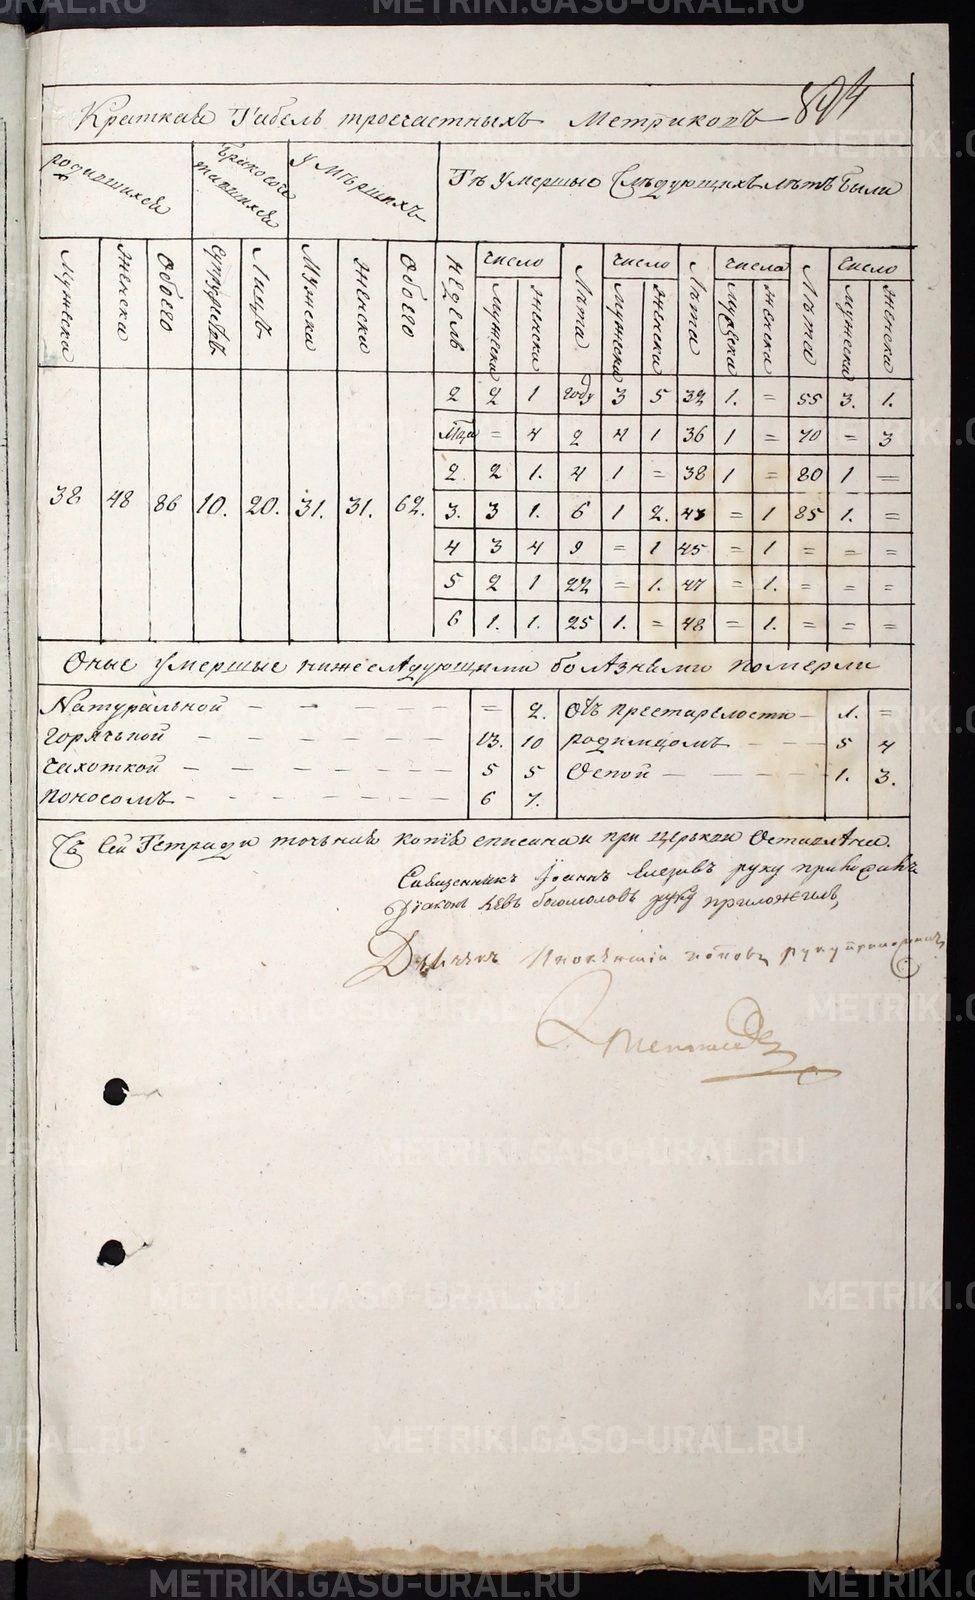 METRIKI.GASO-URAL.RU
Краткая Табель троечастныхъ Метриковъ 894
родившихся
Бракосочетавшихся
Умершихъ
Тѣ Умершыю Слѣдующихъ лѣтъ были
Мужеска Женска Обоего Супружевъ Лицъ Мужска Женска Обоего Недель число Лѣта Число Лѣта числа Лѣта Число
Мужеска Женска Мужеска Женска Мужеска женска Мужеска Женска
2 2 1 году 3 5 32 1. = 55 3. 1.
Мца = 4 2 4 1 36 1 = 70 = 3
2 2 1. 4 1 = 38 1 = 80 1 =
38 48 86 10. 20. 31. 31. 62. 3. 3 1. 6 1 2. 43 = 1 85 1. =
4 3 4 9 = 1 45 = 1 = = =
5 2 1 22 = 1. 47 = 1. = = =
6 1. 1. 25 1. = 48 = 1. = = =
Оные умершые нижеслѣдующими болѣзнями померли
Натуральной = 2. Отъ престарелости 1. =
горячьной 13. 10 родимцомъ 5 4
Чахоткой 5 5 Оспой 1. 3.
поносомъ 6 7.
Съ Сей Тетради точьная копія списана и при церькви Оставлѣна.
Священникъ Іоаннъ руку приложилъ
Діаконъ Левъ богомоловъ руку приложилъ,
Дьячекъ поповъ руку приложилъ
METRIKI.GASO-URAL.RU
METRIKI.GASO-URAL.RU
METRIKI.GASO-URAL.RU
METRIKI.GASO-URAL.RU
METRIKI.GASO-URAL.RU